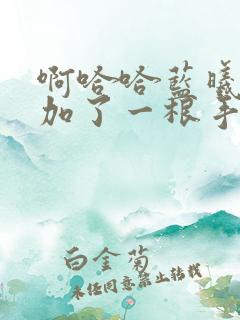 啊哈哈蓝曦
加了一根手
白金菊
未经同意禁止转载